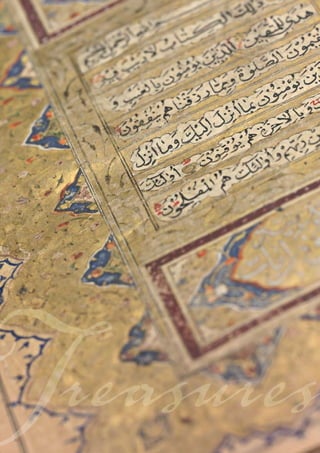 ذلك الكتاب لا ريب فيه
هدى للمتقين الذين يؤمنون بالغيب و
الصلوة ومما رزقناهم ينفقون
يؤمنون بما انزل اليك وما انزل
وبالاخرة هم يوقنون اولئك
ربهم واولئك هم المفلحون
Treasures